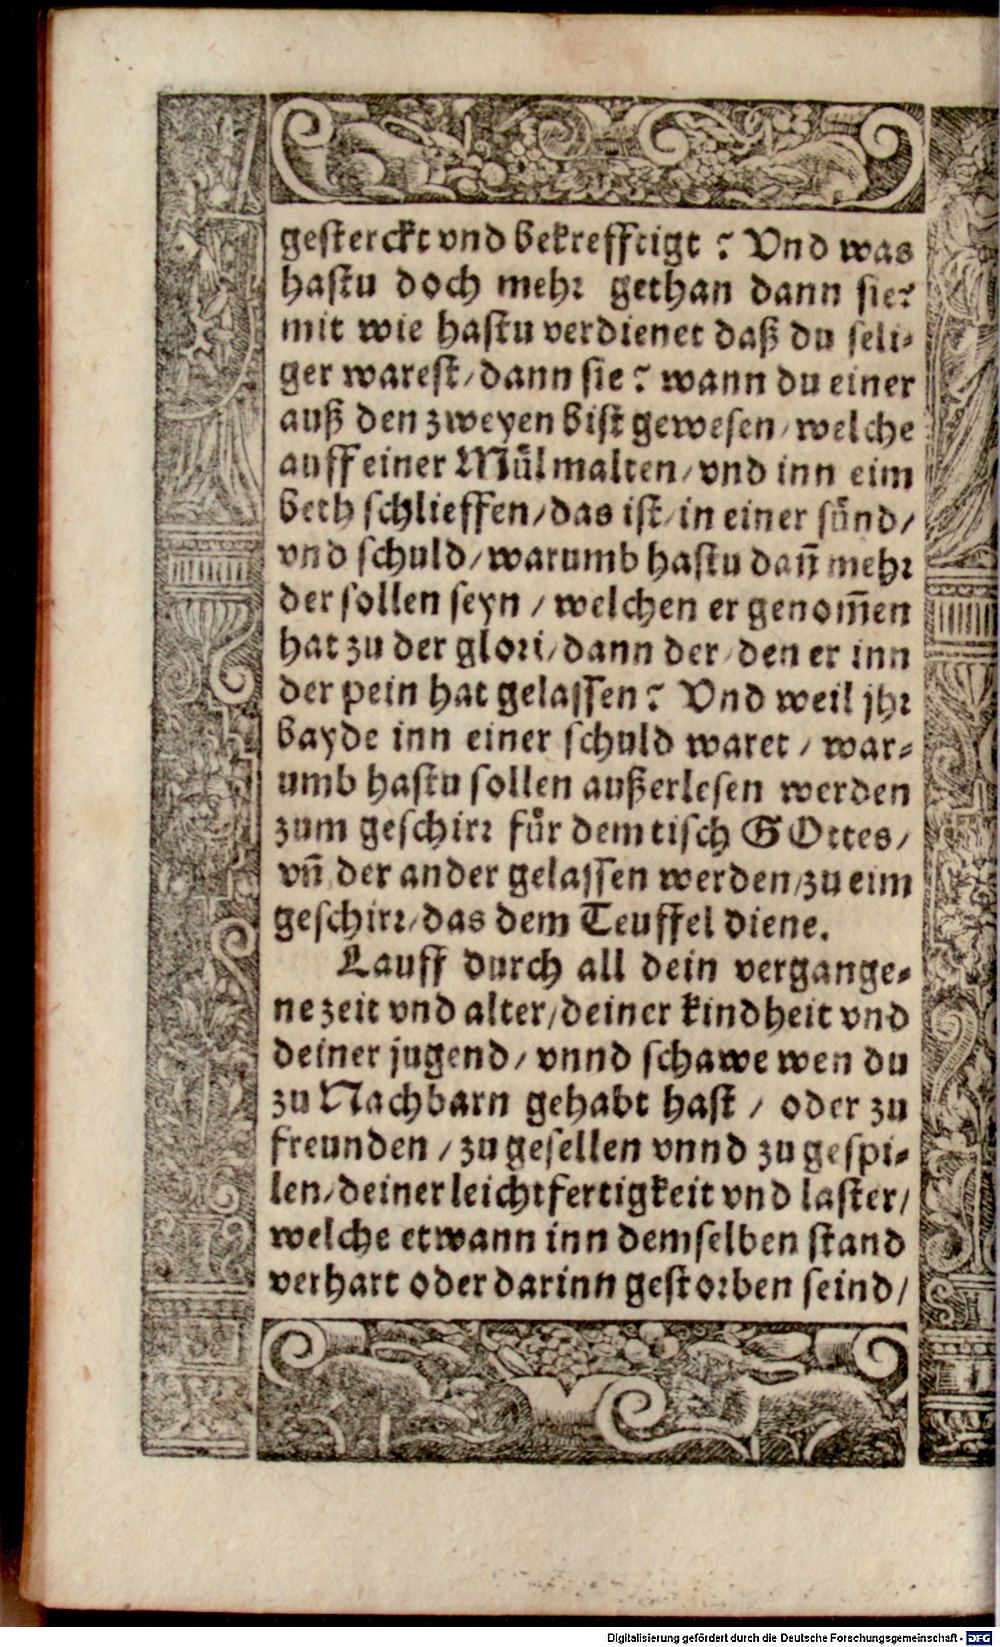 gesterckt vnd bekrefftigt? Vnd was
hastu doch mehr gethan dann sie?
mit wie hastu verdienet daß du seli-
ger warest/ dann sie? wann du einer
auß den zweyen bist gewesen/ welche
auff einer Mülmalten/ vnd inn eim
beth schlieffen/ das ist/ in einer sünd/
vnd schuld/ warumb hastu dañ mehr
der sollen seyn/ welchen er genom̃en
hat zu der glori/ dann der/ den er inn
der pein hat gelassen? Vnd weil jhr
bayde inn einer schuld waret/ war-
umb hastu sollen außerlesen werden
zum geschirr für dem tisch GOttes/
vñ der ander gelassen werden/ zu eim
geschirr/ das dem Teuffel diene.
Lauff durch all dein vergange-
ne zeit vnd alter/ deiner kindheit vnd
deiner jugend/ vnnd schawe wen du
zu Nachbarn gehabt hast/ oder zu
freunden/ zu gesellen vnnd zu gespi-
len/ deiner leichtfertigkeit vnd laster/
welche etwann inn demselben stand
verhart oder darinn gestorben seind/
Digitalisierung gefördert durch die Deutsche Forschungsgemeinschaft - DFG